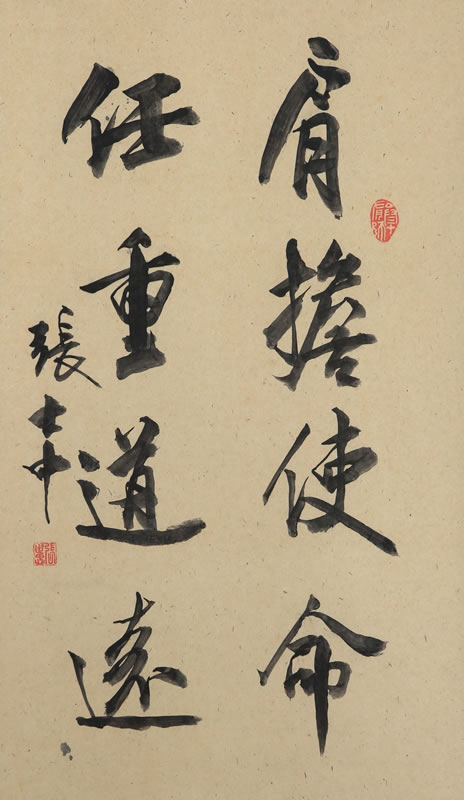 肩擔使命
任重道遠
張士中